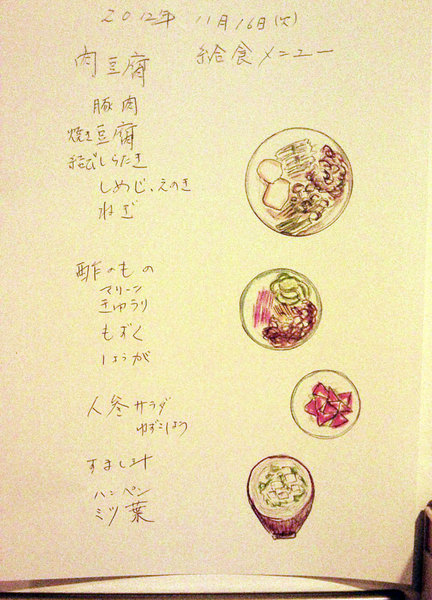 2012年 11月16日(火)
給食メニュー
肉豆腐
豚肉
焼き豆腐
結びしらたき
しめじ、えのき
ねぎ
酢のもの
マリーン
きゅうり
もずく
しょうが
人参サラダ
ゆずこしょう
すまし汁
ハンペン
ミツ葉